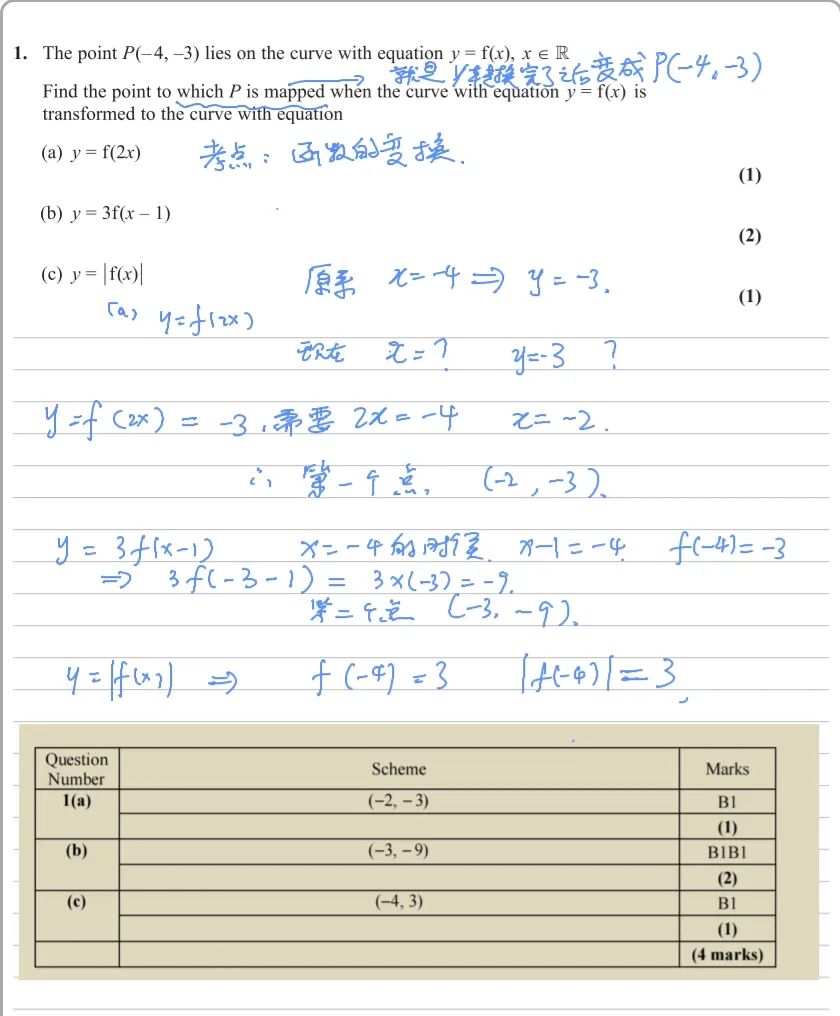 1. The point P(−4, −3) lies on the curve with equation y = f(x), x ∈ ℝ
就是 转换完了之后变成 P(-4, -3)
Find the point to which P is mapped when the curve with equation y = f(x) is
transformed to the curve with equation
(a) y = f(2x)
考点: 函数的变换.
(1)
(b) y = 3f(x – 1)
(2)
(c) y = |f(x)|
原来 x = -4 ⇒ y = -3.
(1)
(a) y = f(2x)
现在 x = ? y = -3 ?
y = f(2x) = -3, 需要 2x = -4 x = -2.
∴ 第一个点, (-2, -3).
y = 3f(x-1) x = -4 的时候. x-1 = -4. f(-4) = -3
⇒ 3f(-3-1) = 3×(-3) = -9.
第二个点 (-3, -9).
y = |f(x)| ⇒ f(-4) = 3 |f(-4)| = 3,
Question Number Scheme Marks
1(a) (−2, −3) B1
(1)
(b) (−3, −9) B1B1
(2)
(c) (−4, 3) B1
(1)
(4 marks)